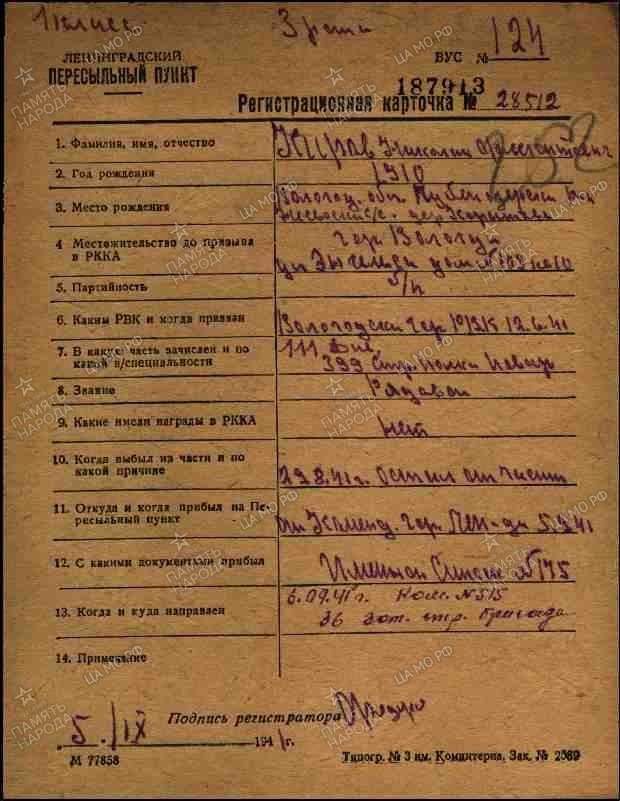 1 класс 3 рота
ЛЕНИНГРАДСКИЙ ВУС № 124
ПЕРЕСЫЛЬНЫЙ ПУНКТ
187913
Регистрационная карточка № 28512
252
1. Фамилия, имя, отчество Киров Николай
2. Год рождения 1910
3. Место рождения Вологод. обл. Кубеноозерский
с/с. дер.
4 Местожительство до призыва гор. Вологда
в РККА ул. Энгельса дом №
5. Партийность б/п
6. Каким РВК и когда призван Вологодский гор РВК 12.6.41
7. В какую часть зачислен и по 111 Див,
какой в/специальности 399 стр. полка повар
8. Звание Рядовой
9. Какие имели награды в РККА нет
10. Когда выбыл из части и по
какой причине 29.8.41г. Отстал от части
11. Откуда и когда прибыл на Пе-
ресыльный пункт от Коменд. гор. Лен-да 5.9.41
12. С какими документами прибыл Именной Список №175
6.09.41г. Ком. №515
13. Когда и куда направлен
36 зап. стр. бригада
14. Примечание
Подпись регистратора
5./IX 1941г.
М 77858 Типогр. № 3 им. Коминтерна, Зак. № 2569
ПАМЯТЬ НАРОДА
ЦА МО РФ